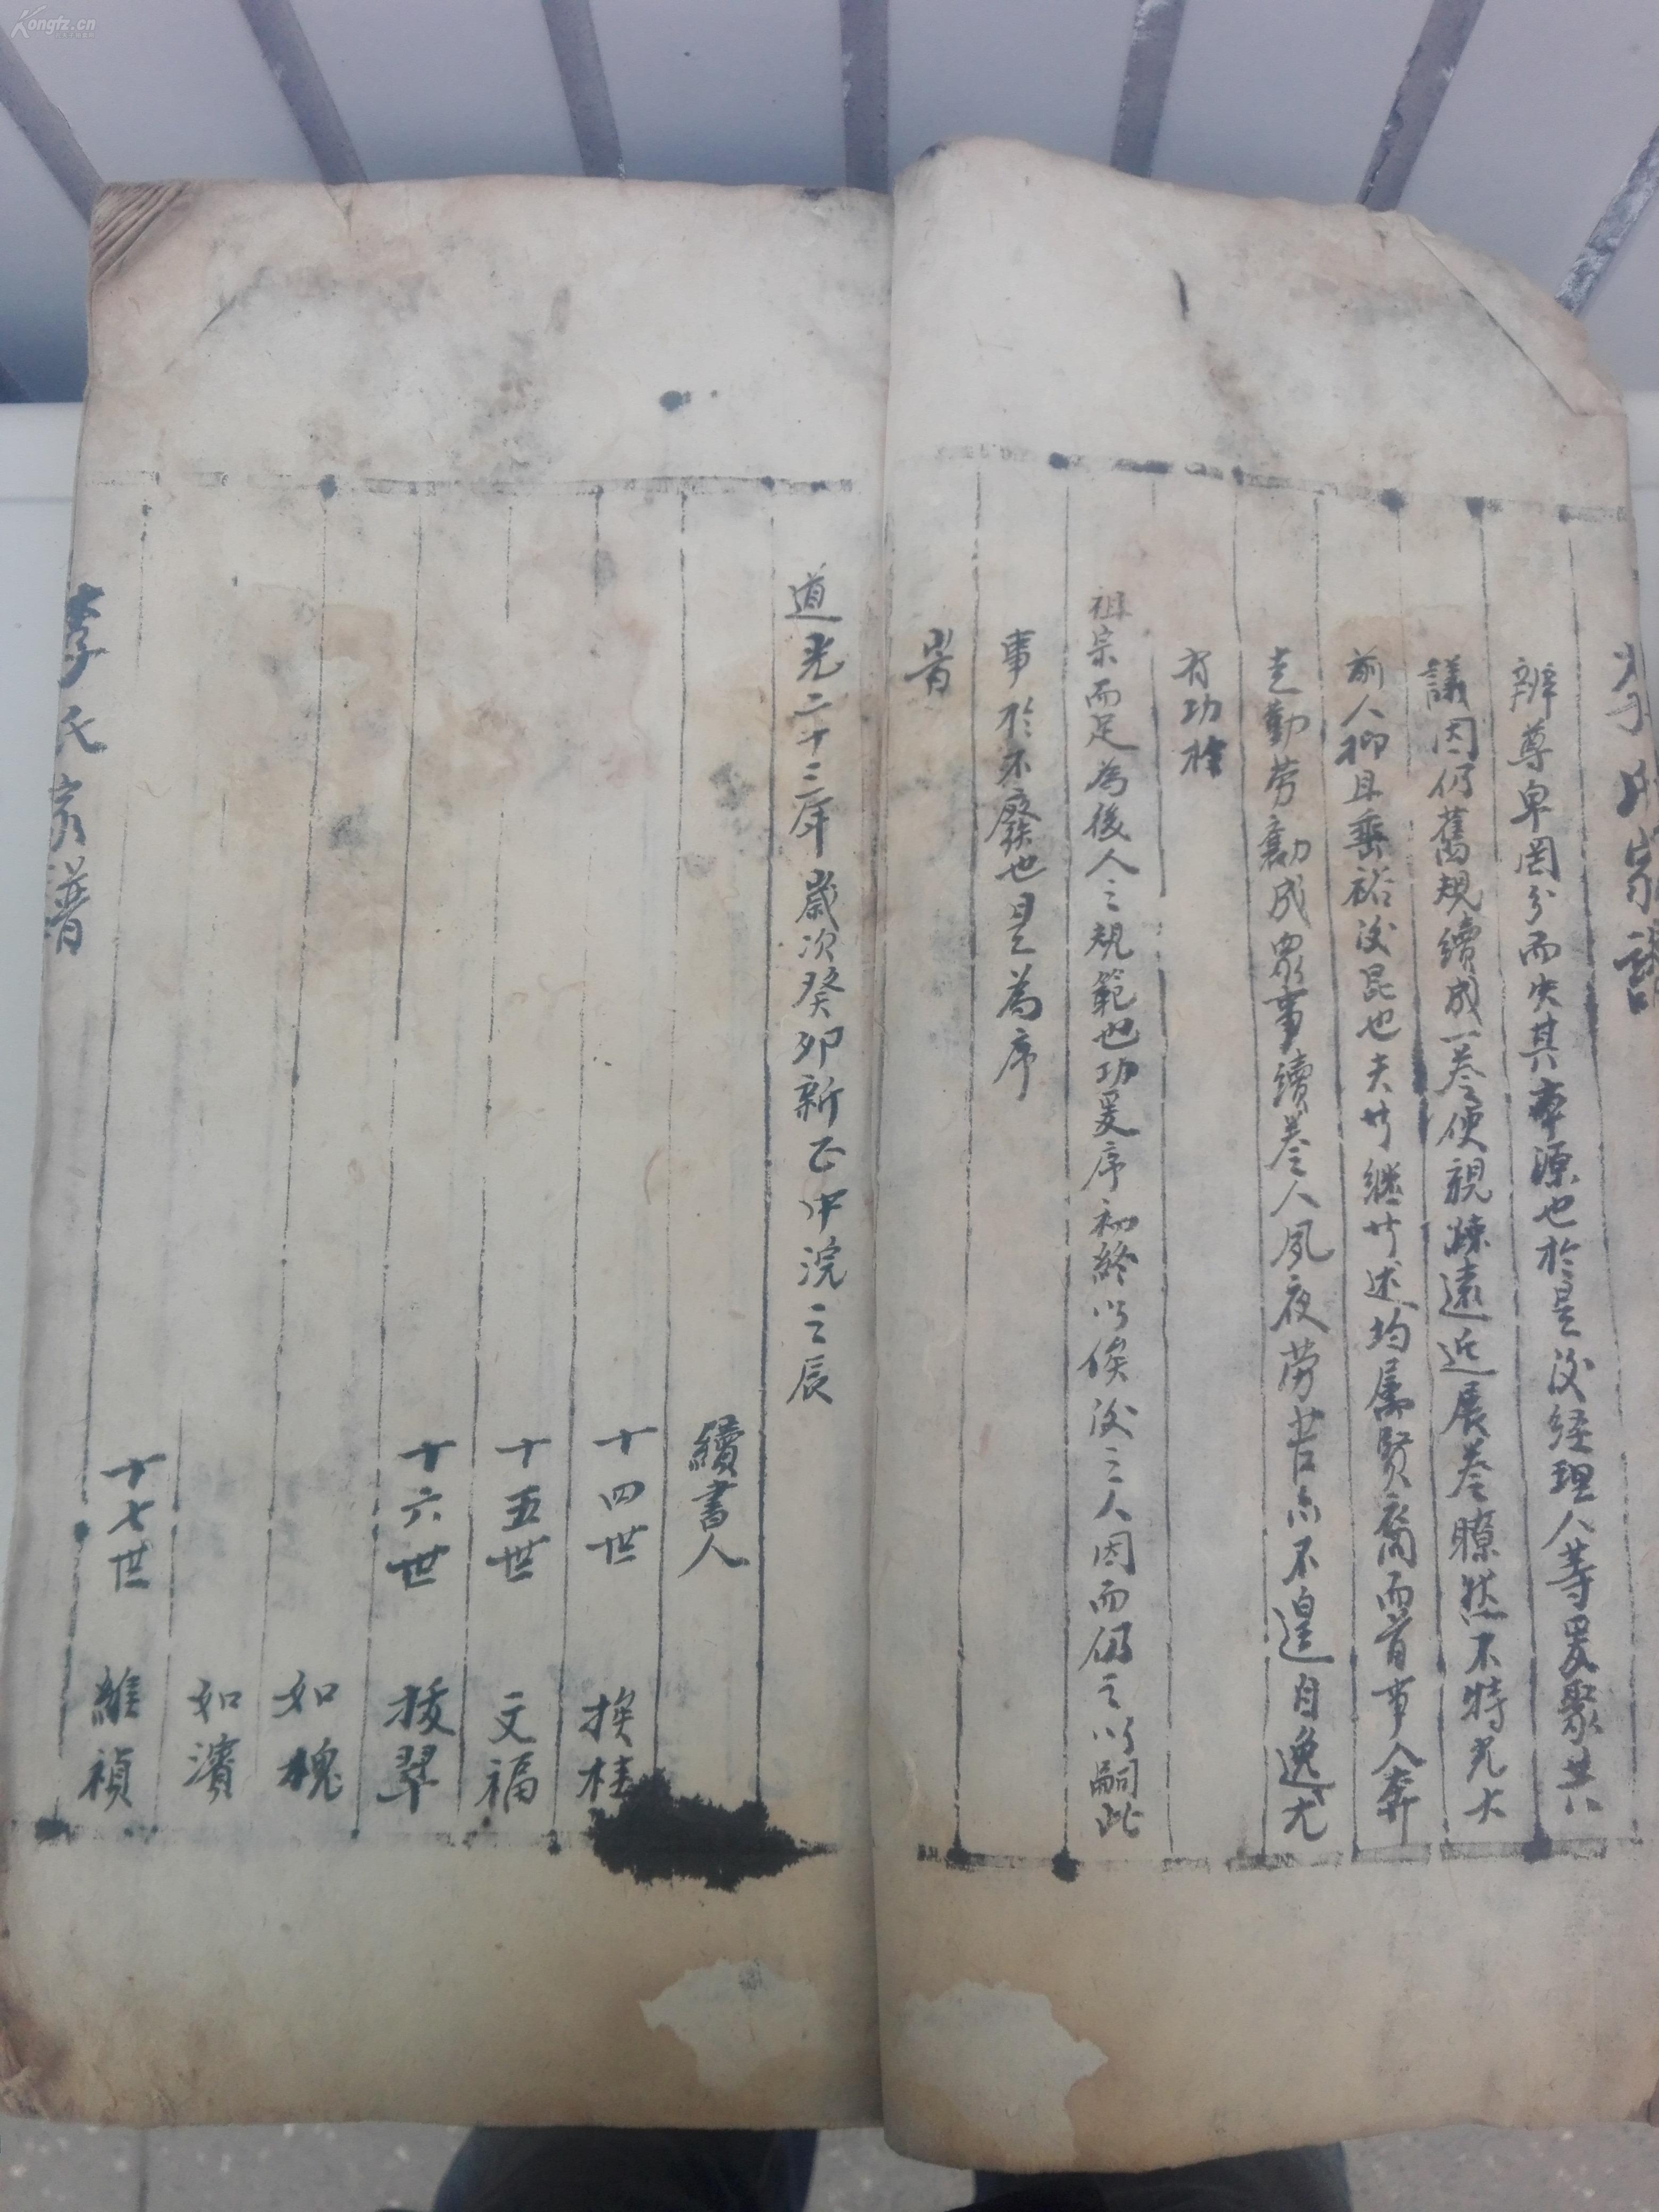 Kongfz.cn
辨尊卑罔分而失其本源也於是後经理人等爰聚共
議因仍舊規續成一卷使親疎遠近展卷瞭然不特光大
前人抑且垂裕後昆也夫廾継廾述均属賢裔而首事人奔
走勤劳勷成眾事續卷人夙夜劳苦亦不遑自逸尤
有功於
祖宗而足為後人之規範也功爰序初終以俟後之人因而仍之以嗣此
事於不廢也是為序
旹
道光二十三年歲次癸卯新正中浣之辰
續書人
十四世 挨桂
十五世 文福
十六世 拔翠
如槐
如濱
十七世 維禎
李氏家譜